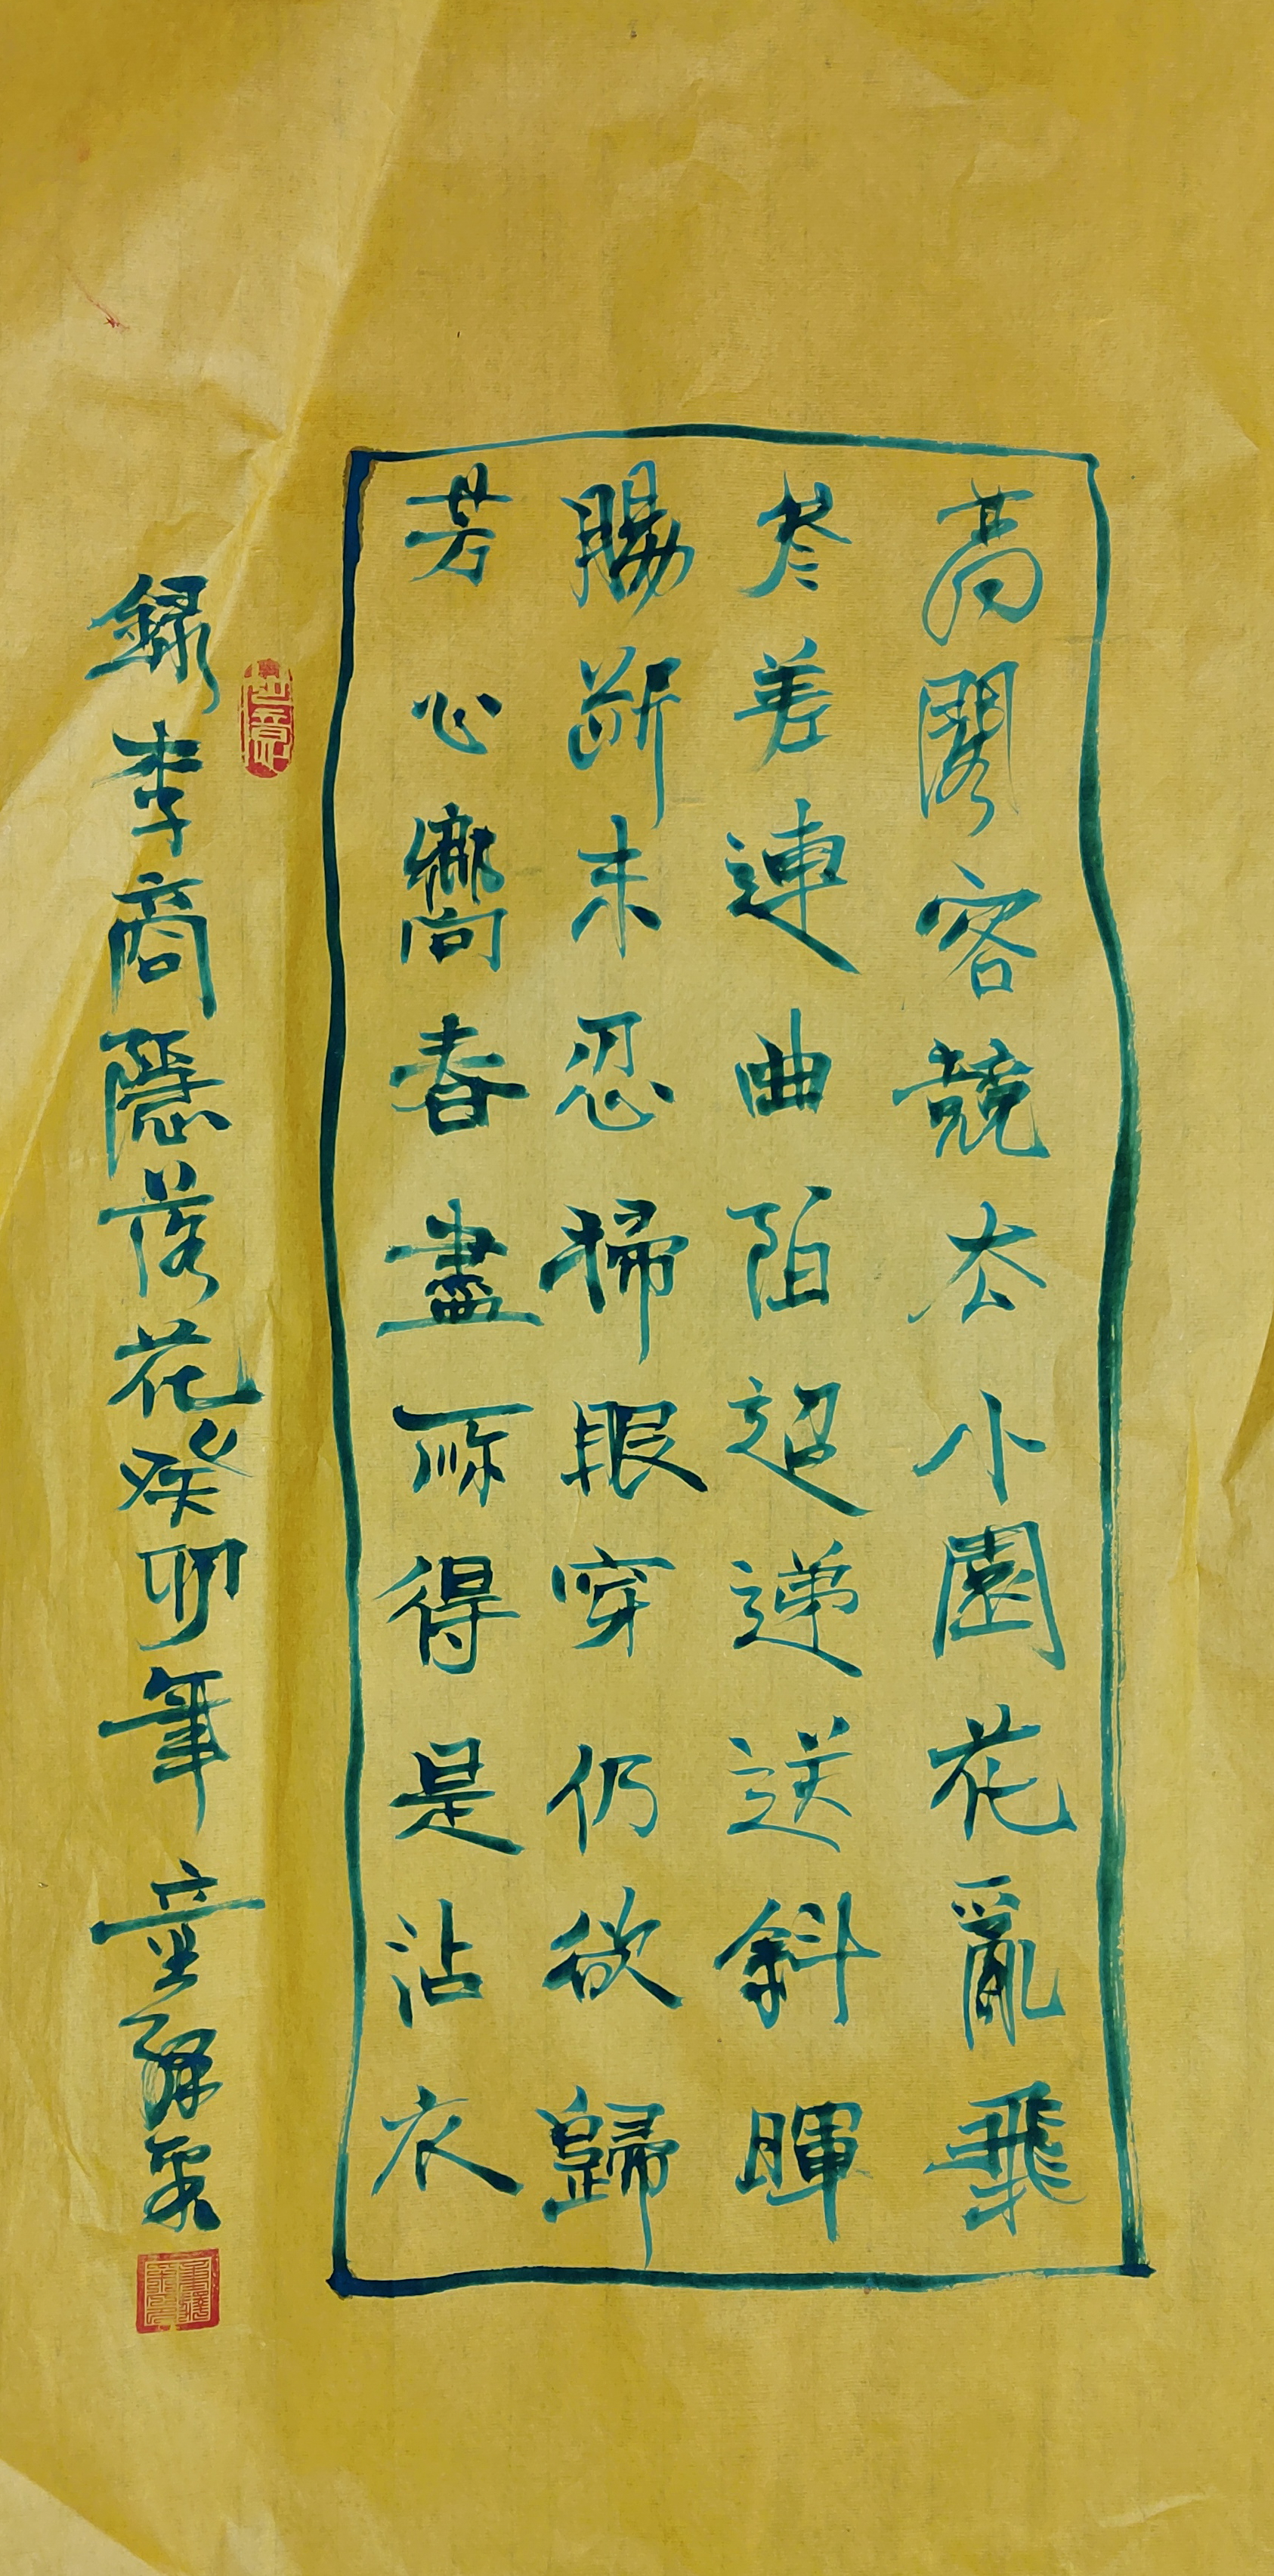 高閣客競去小園花亂飛
參差連曲陌迢遞送斜暉
腸斷未忍掃眼穿仍欲歸
芳心嚮春盡所得是沾衣
錄李商隱落花癸卯年童